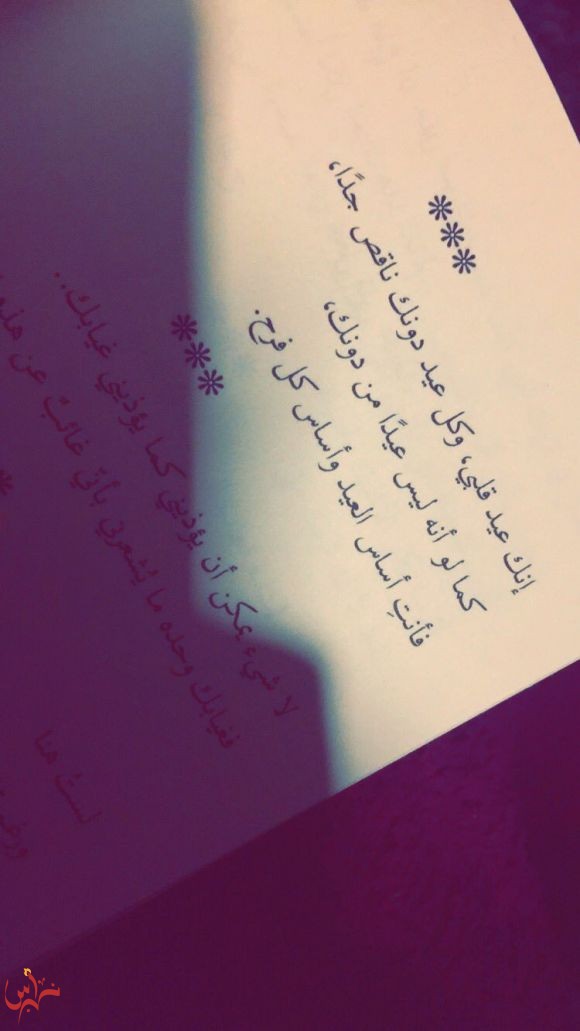 ***
إنك عيد قلبي، وكل عيد دونك ناقص جدًا،
كما لو أنه ليس عيدًا من دونك،
فأنتِ أساس العيد وأساس كل فرح.
***
لا شيء يمكن أن يؤذيني كما يؤذيني غيابك..
فغيابك وحده ما يُشعرني بأني غائبٌ عن هذه
*
لستُ هنا